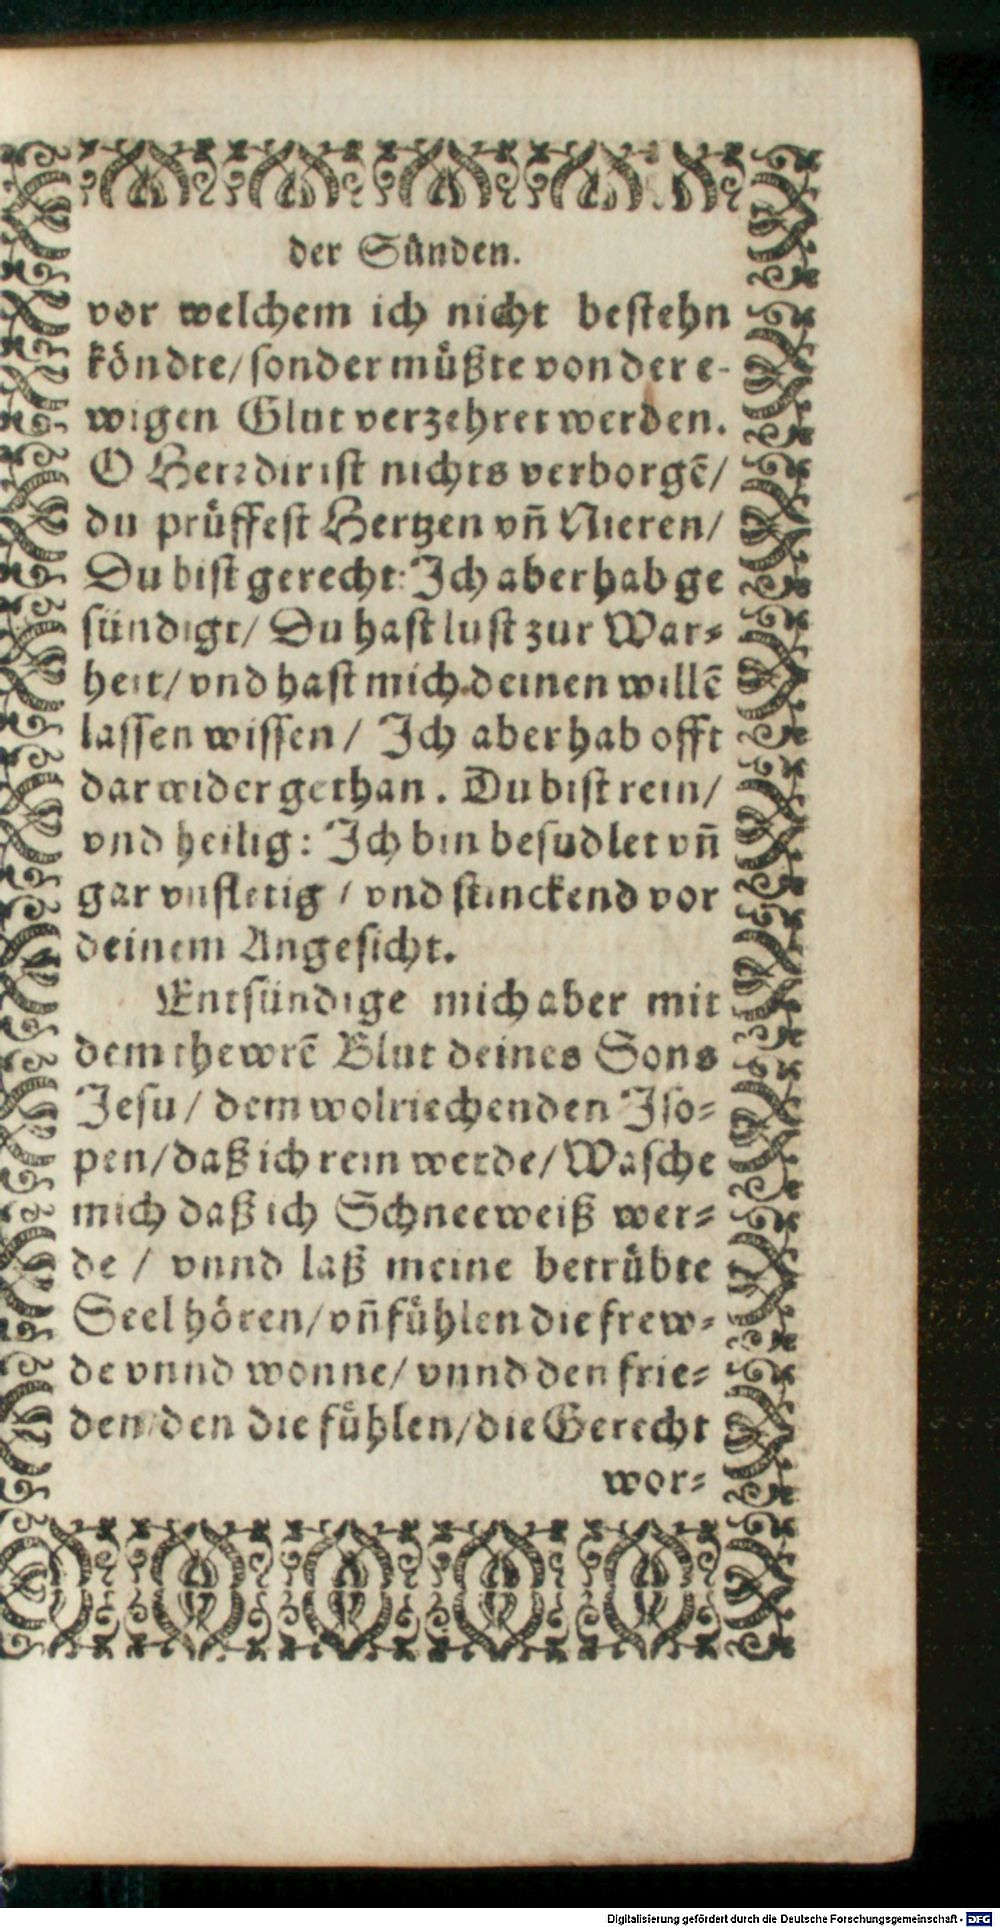 der Sünden.
vor welchem ich nicht bestehn
köndte/sonder müßte von der e-
wigen Glut verzehret werden.
O Herr dir ist nichts verborgē/
du prüffest Hertzen vñ Nieren/
Du bist gerecht: Ich aber hab ge
sündigt/ Du hast lust zur War-
heit/ vnd hast mich deinen willē
lassen wissen/ Ich aber hab offt
darwider gethan. Du bist rein/
vnd heilig: Ich bin besudlet vñ
gar vnfletig / vnd stinckend vor
deinem Angesicht.
Entsündige mich aber mit
dem thewrē Blut deines Sons
Jesu/ dem wolriechenden Iso-
pen/daß ich rein werde/Wasche
mich daß ich Schneeweiß wer-
de / vnnd laß meine betrübte
Seel hören/vñ fühlen die frew-
de vnnd wonne/ vnnd den frie-
den/den die fühlen/die Gerecht
wor-
Digitalisierung gefördert durch die Deutsche Forschungsgemeinschaft - DFG